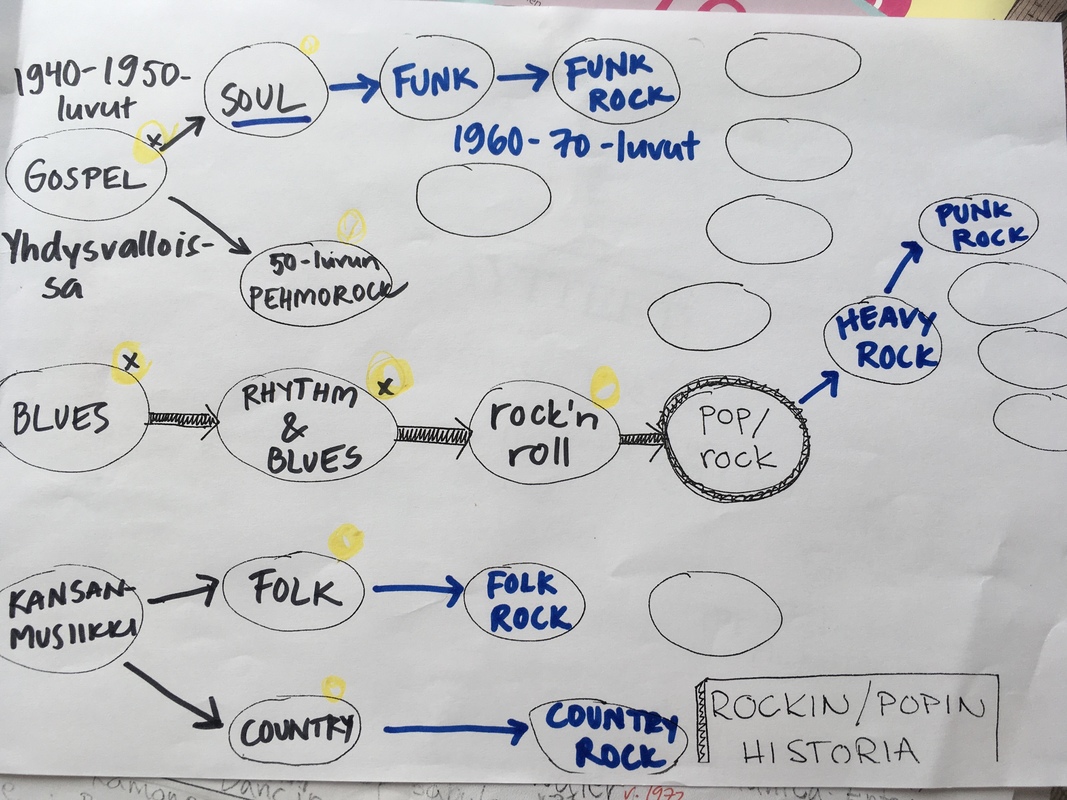 1940-1950-
luvut
SOUL
FUNK
FUNK
ROCK
1960-70-luvut
GOSPEL
Yhdysvallois-
sa
50-luvun
PEHMOROCK
PUNK
ROCK
HEAVY
ROCK
BLUES
RHYTHM
&
BLUES
rock'n
roll
POP/
rock
KANSAN-
MUSIIKKI
FOLK
FOLK
ROCK
COUNTRY
COUNTRY
ROCK
ROCKIN/POPIN
HISTORIA
v. 1972